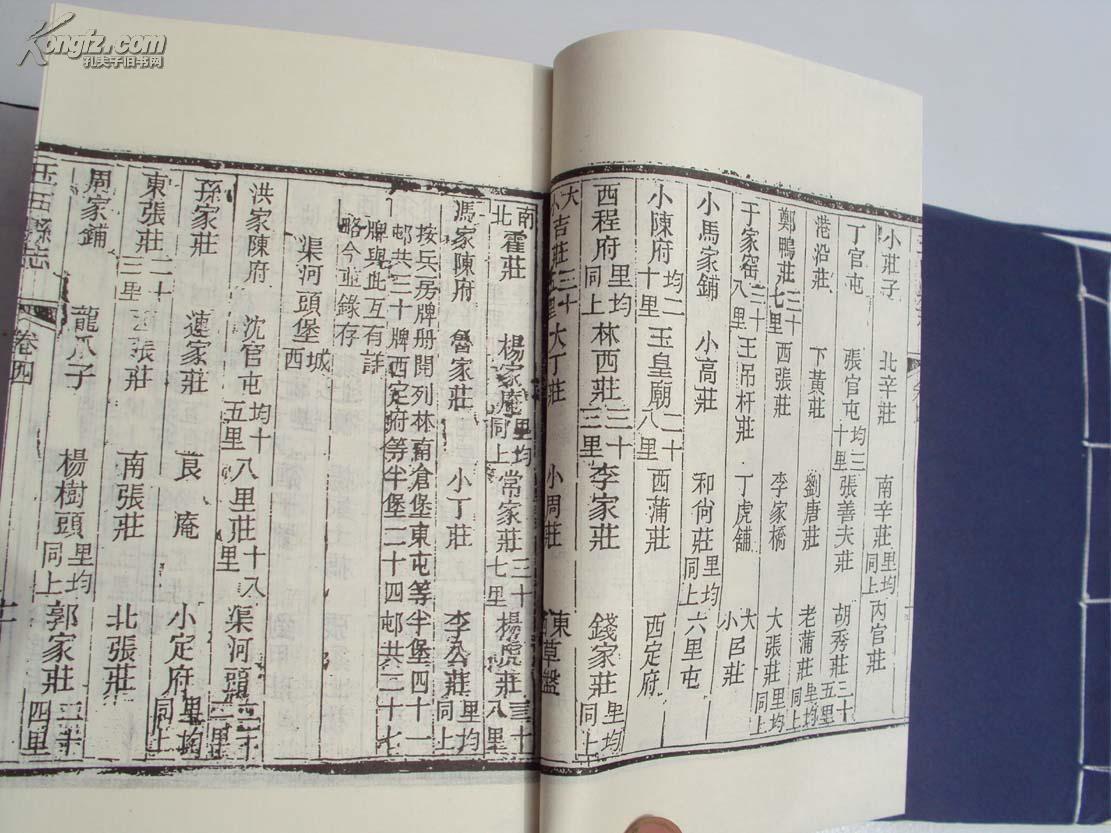 Kongfz.com
孔夫子旧书网
小莊子 北辛莊 南辛莊里均同上 丙官莊
丁官屯 張官屯均三十里 張善夫莊 胡秀莊三十五里
港沿莊 下黃莊 劉唐莊 老蒲莊里均同上
鄭鴨莊三十七里 西張莊 李家橋 大張莊里均同上
于家窑三十八里 王吊杆莊 丁虎舖 大小呂莊
小馬家鋪 小高莊 和尙莊里均同上 六里屯
小陳府均二十里 玉皇廟二十八里 西蒲莊 西定府
西程府里均同上 林西莊三十三里 李家莊 錢家莊里均同上
大小吉莊三十五里 大丁莊 小周莊 東草盤
南北霍莊 楊家庵里均同上 常家莊三十七里 楊虎莊三十八里
馮家陳府 魯家莊 小丁莊 李公莊里均同上
按兵房牌册開列林南倉堡東屯等半堡四十一
邨共三十牌西定府等半堡二十四邨共二十七
牌與此互有詳
略今並錄存
渠河頭堡城西
洪家陳府 沈官屯均十五里 八里莊十八里 渠河頭二十二里
孫家莊 連家莊 良庵 小定府里均同上
東張莊二十三里 西張莊 南張莊 北張莊
周家鋪 龍爪子 楊樹頭里均同上 郭家莊二十四里
玉田縣志 卷四